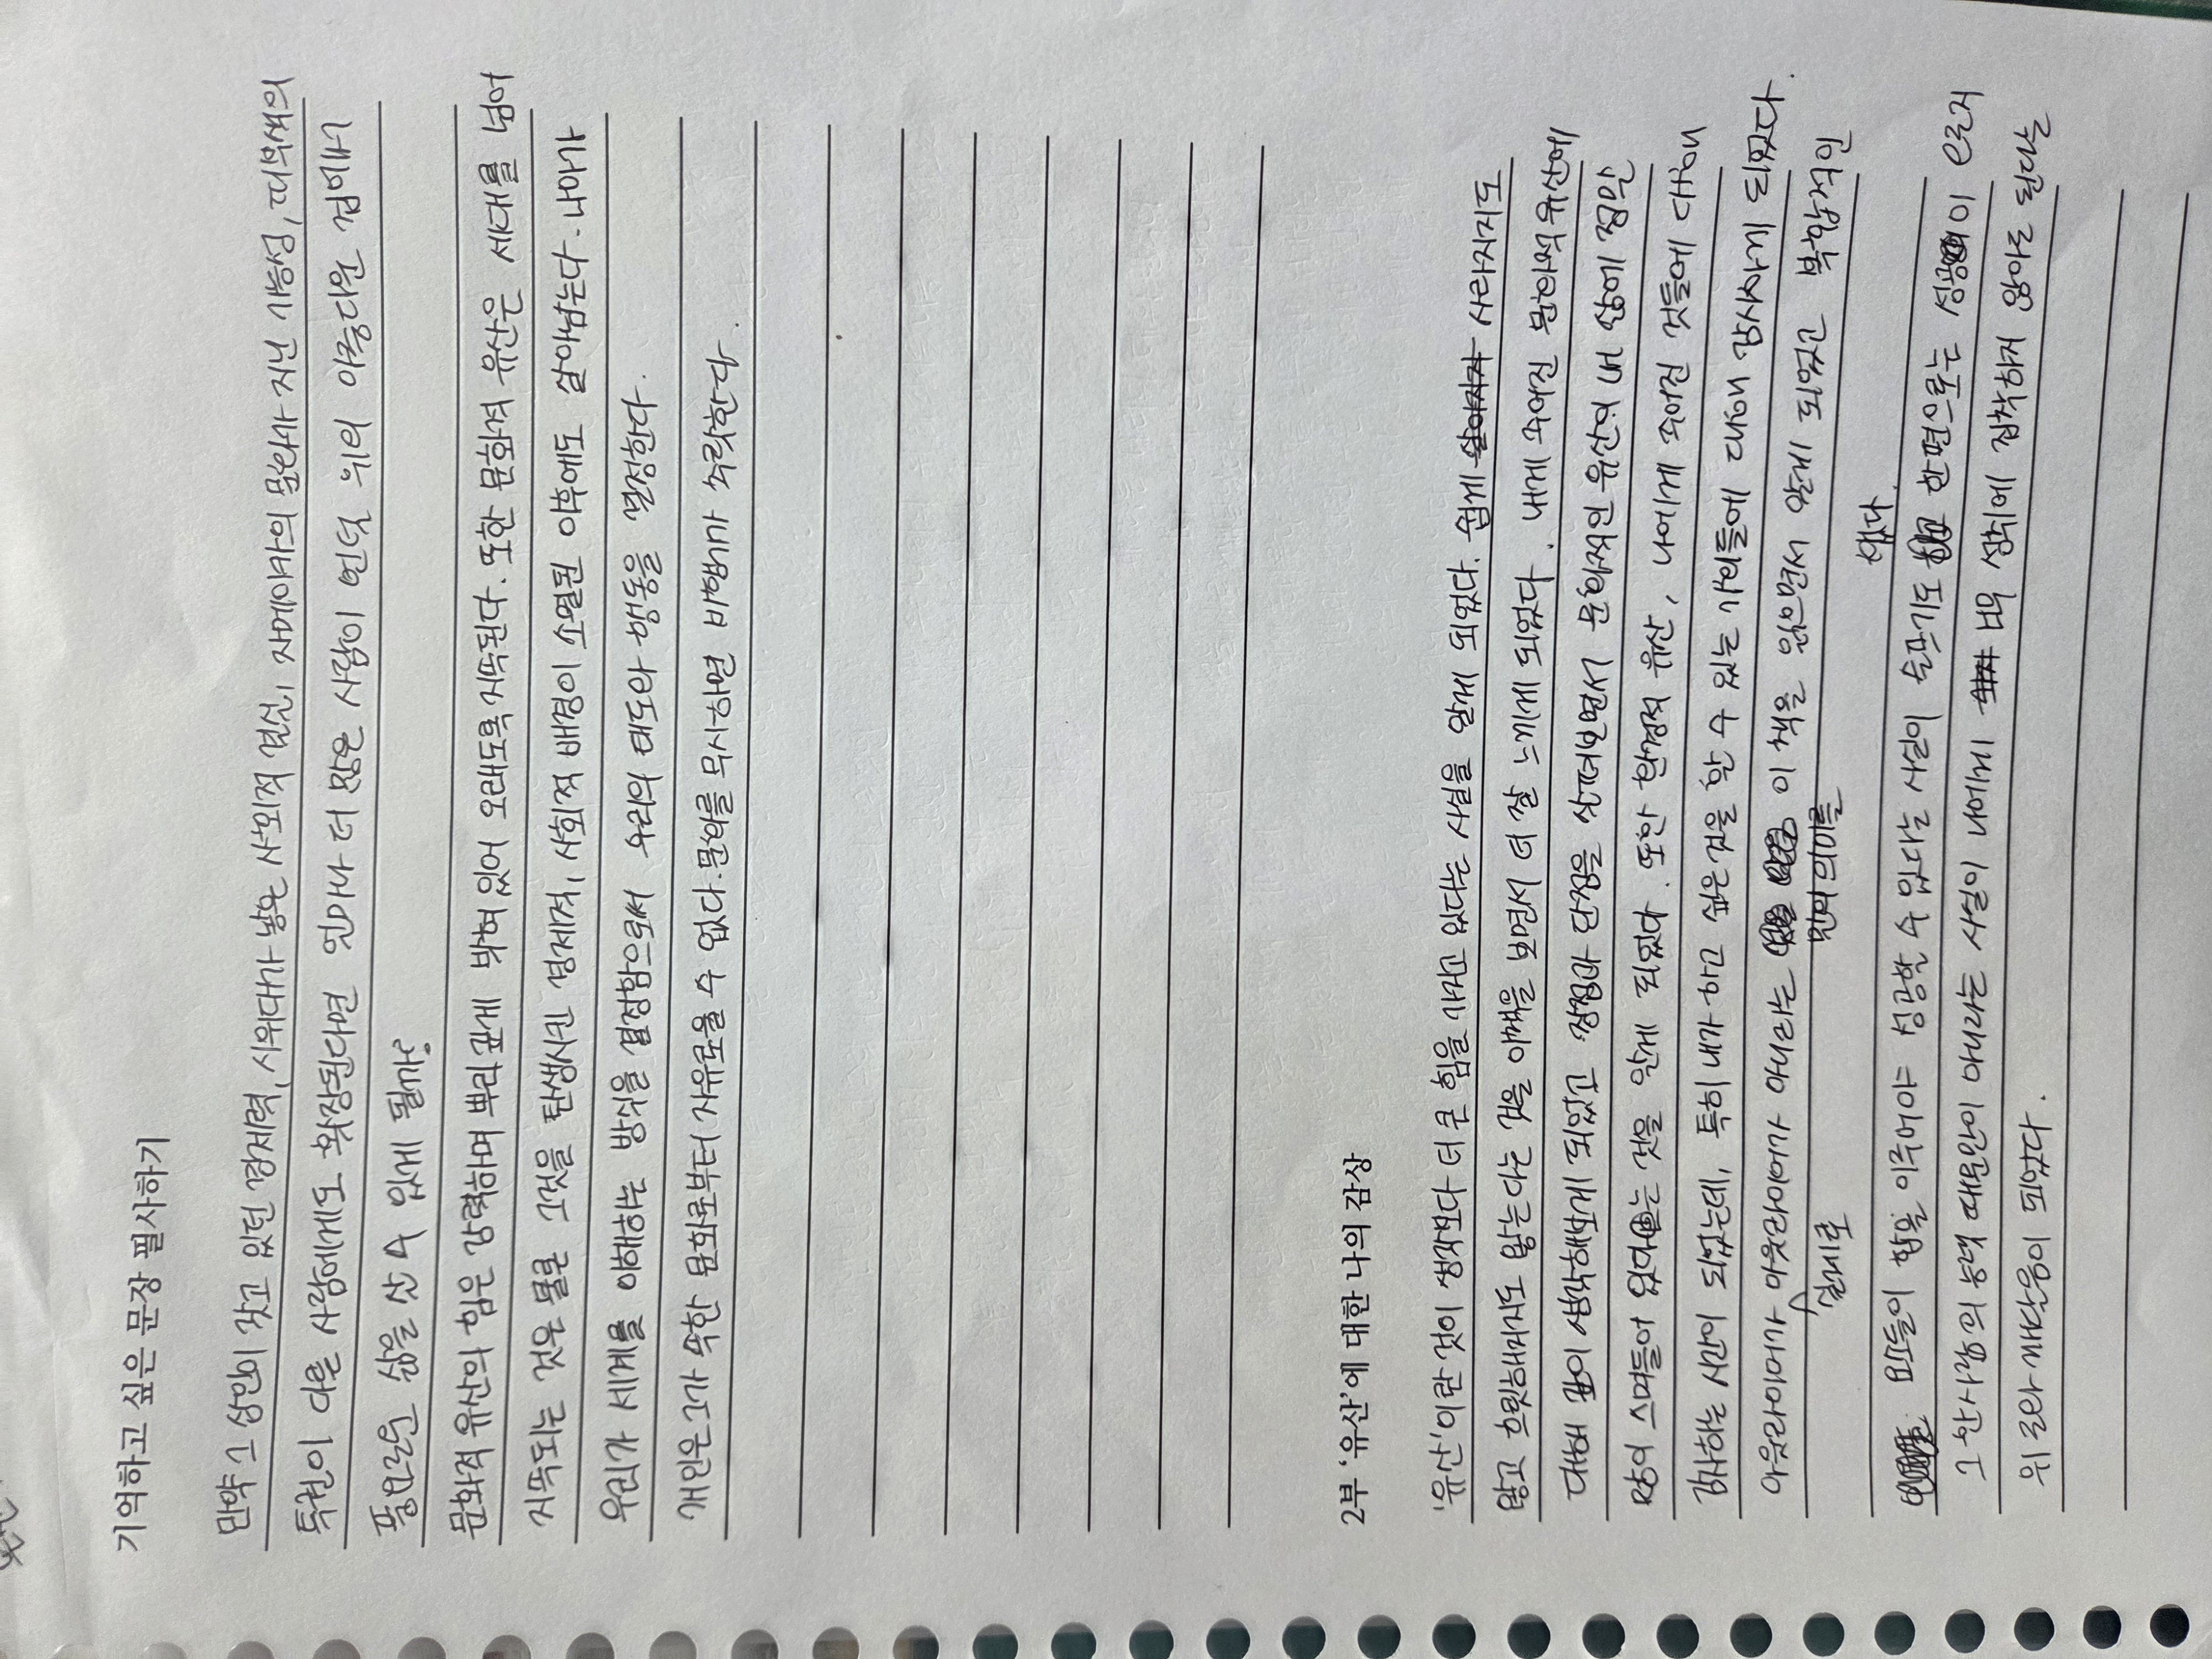 기억하고 싶은 문장 필사하기
만약 그 상인이 갖고 있던 경제력, 시위대가 낳은 사회적 결실, 자메이카의 문화가 지닌 가능성, 피부색의
특권이 다른 사람에게도 확장된다면 얼마나 더 많은 사람이 언덕 위의 아름다운 집에서
풍요로운 삶을 살 수 있게 될까?
문화적 유산의 힘은 강력하며 뿌리 깊게 박혀 있어 오래도록 지속된다. 또한 문화적 유산은 세대를 넘어
지속되는 것은 물론 그것을 탄생시킨 경제적, 사회적 배경이 소멸된 이후에도 살아남는다. 나아가
우리가 세계를 이해하는 방식을 결정함으로써 우리의 태도와 행동을 결정한다.
개인은 그가 속한 문화로부터 자유로울 수 없다. 문화를 무시하면 비행기가 추락한다.
2부 ‘유산’에 대한 나의 감상
'유산'이란 것이 생각보다 더 큰 힘을 가지고 있다는 사실을 알게 되었다. 쉽게 사라지지도
않고 흐릿해지지도 않는다는 것을 이 책을 보면서 더 잘 느끼게 되었다. 내게 주어진 문화적 유산에
대해 깊이 생각해보게 되었고 장점과 단점을 살펴보면서 문화적인 유산이 내 삶에 정말
많이 스며들어 있다는 것을 알게 되었다. 또한 환경적 유산, 나에게 주어진 것들에 대해
감사하는 시간이 되었는데, 특히 내가 하고 싶은 것을 할 수 있는 기회들에 대해 감사하게 되었다.
아웃라이어가 아웃라이어가 아니라는 말의 의미를 이 책을 읽으면서 알게 되었고 복합적인
실제로
모든 요소들이 합을 이루어야 성공할 수 있다는 사실이 슬프기도 했다. 한편으로는 성공이 오로지
그 한 사람의 능력 때문만이 아니라는 사실이 나에게 너무 성취에 집착하지 않아도 된다는
위로와 깨달음이 되었다.